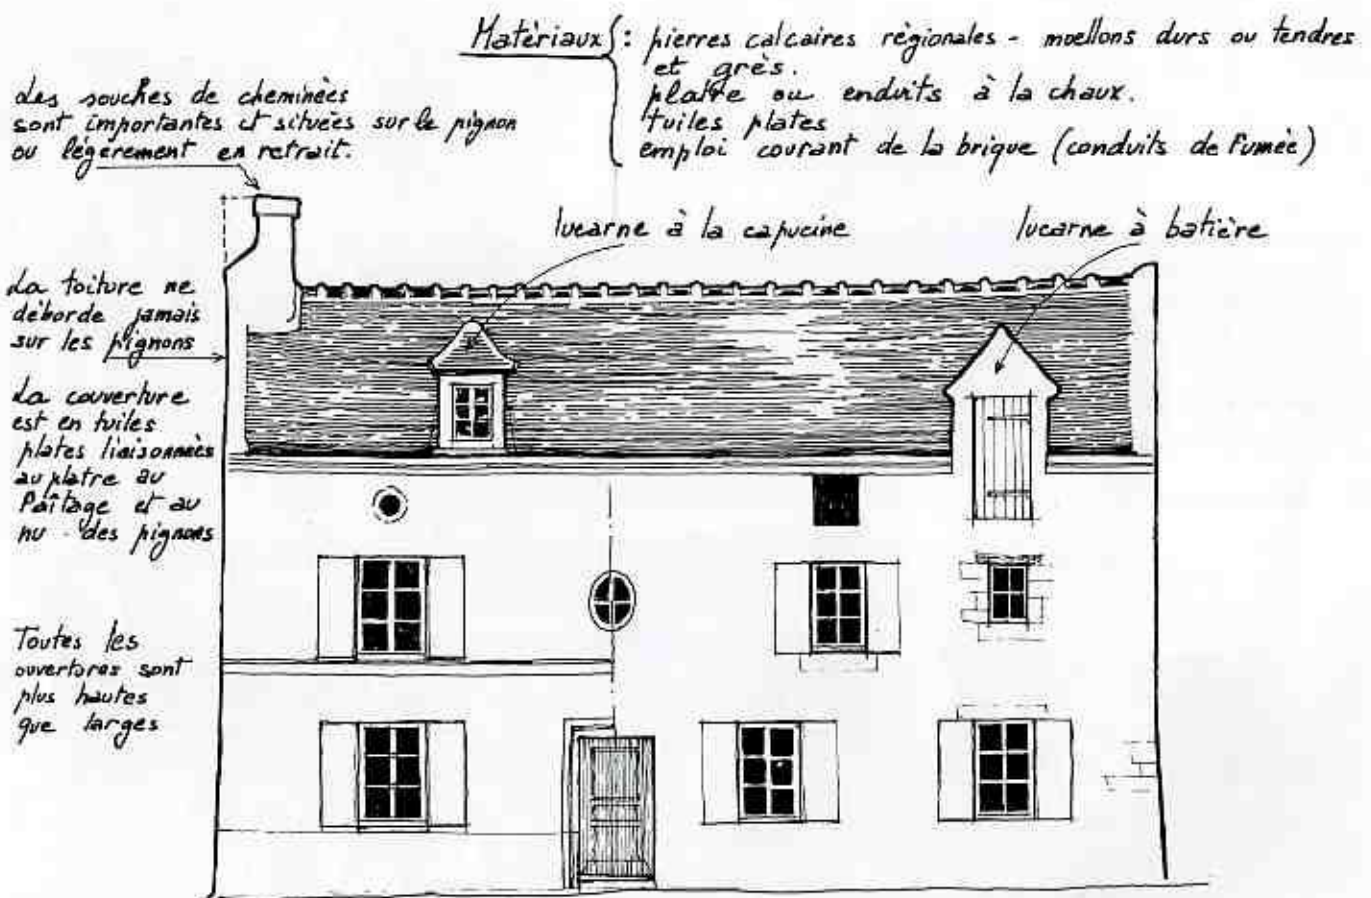 Matèriaux : pierres calcaires règionales - moellons durs ou tendres
et grès.
platre ou enduits à la chaux.
tuiles plates
emploi courant de la brique (conduits de fumèe)
Les souches de cheminèes
sont importantes et situèes sur le pignon
ou lègèrement en retrait.
lucarne à la capucine
lucarne à batière
La toiture ne
dèborde jamais
sur les pignons
La couverture
est en tuiles
plates liaisonnèes
au platre au
faîtage et au
nu des pignons
Toutes les
ouvertures sont
plus hautes
que larges